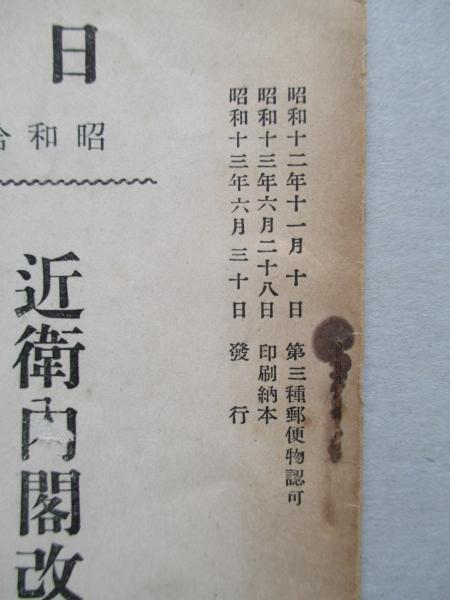 昭和十二年十一月十日 第三種郵便物認可
昭和十三年六月二十八日 印刷納本
昭和十三年六月三十日 發行
日
昭和拾
近衛内閣改